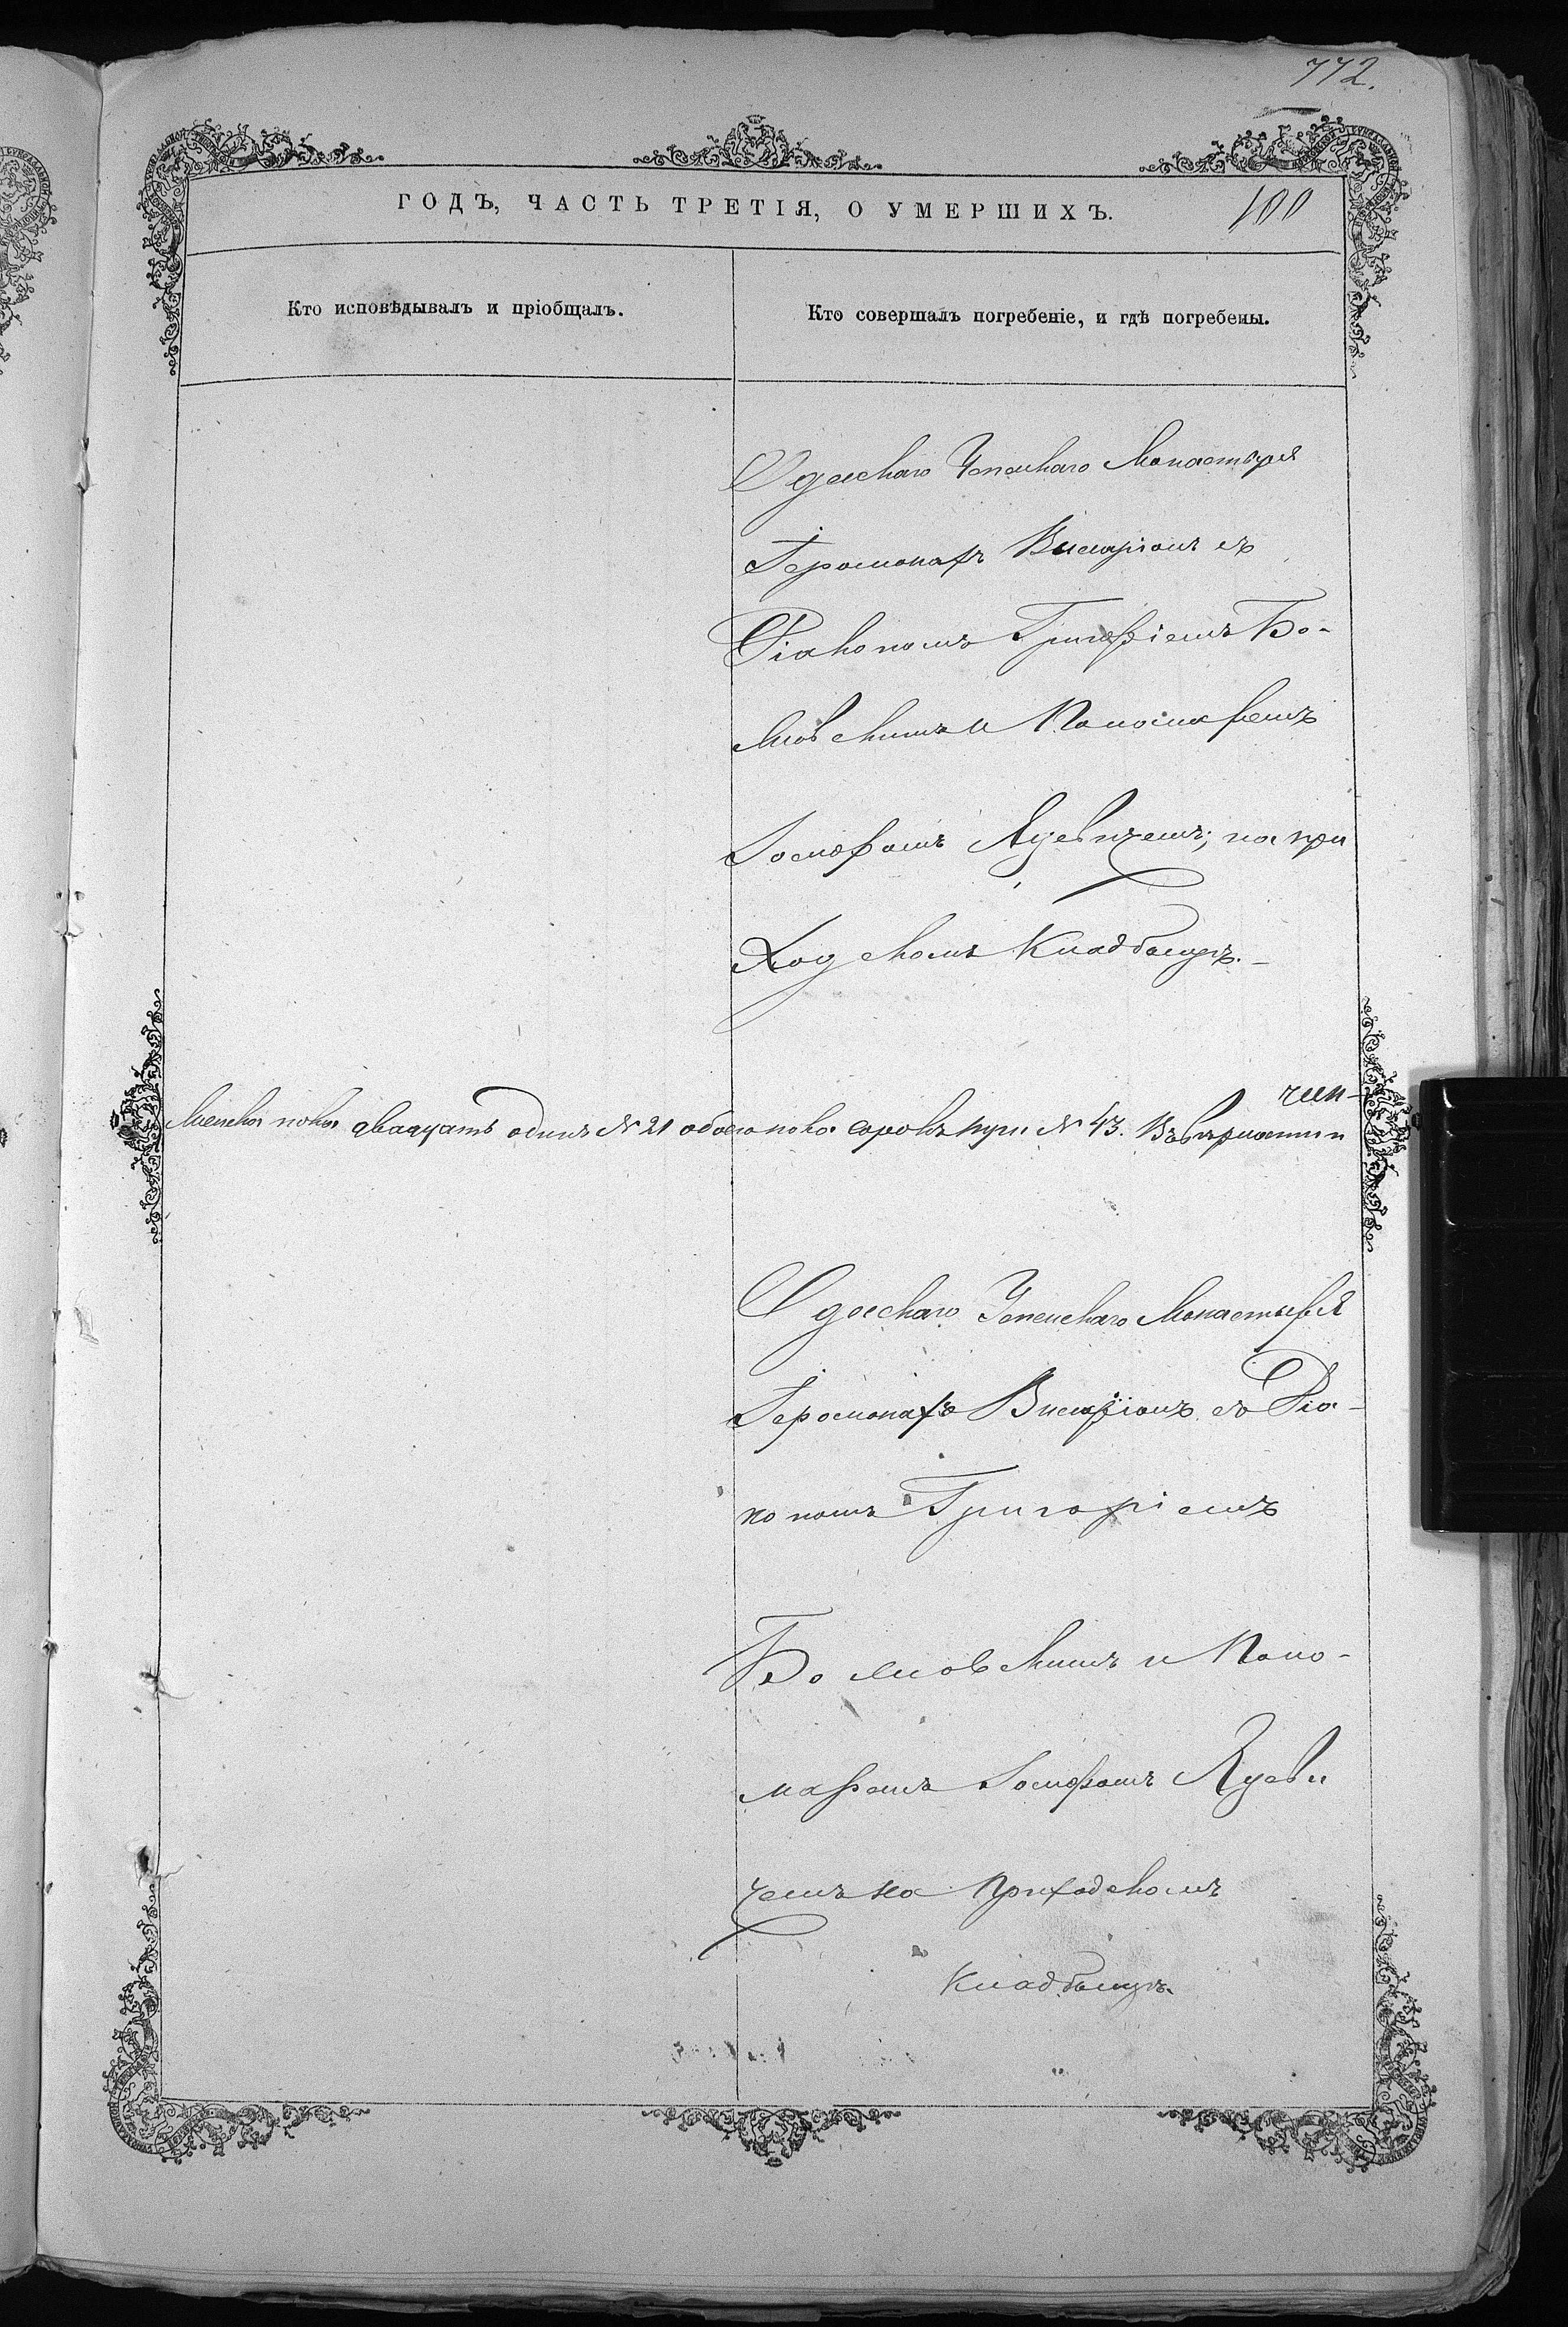 772.
ГОДЪ, ЧАСТЬ ТРЕТІЯ, О УМЕРШИХЪ. 100
Кто исповѣдывалъ и пріобщалъ.
Кто совершалъ погребеніе, и гдѣ погребены.
Одесскаго Успенскаго Монастыря
Іеромонахъ Висаріонъ съ
Діакономъ Григоріемъ Бо-
и Пономаремъ
Іосифомъ на при
ходскомъ Кладбищѣ.
женска пола двадцать одинъ № 21 обоего пола сорокъ три № 43. Въ вѣрности
Одесскаго Успенскаго Монастыря
Іеромонахъ Висаріонъ съ Діа-
кономъ Григоріемъ
и Поно-
маремъ Іосифомъ
чемъ на Приходскомъ
Кладбищѣ.